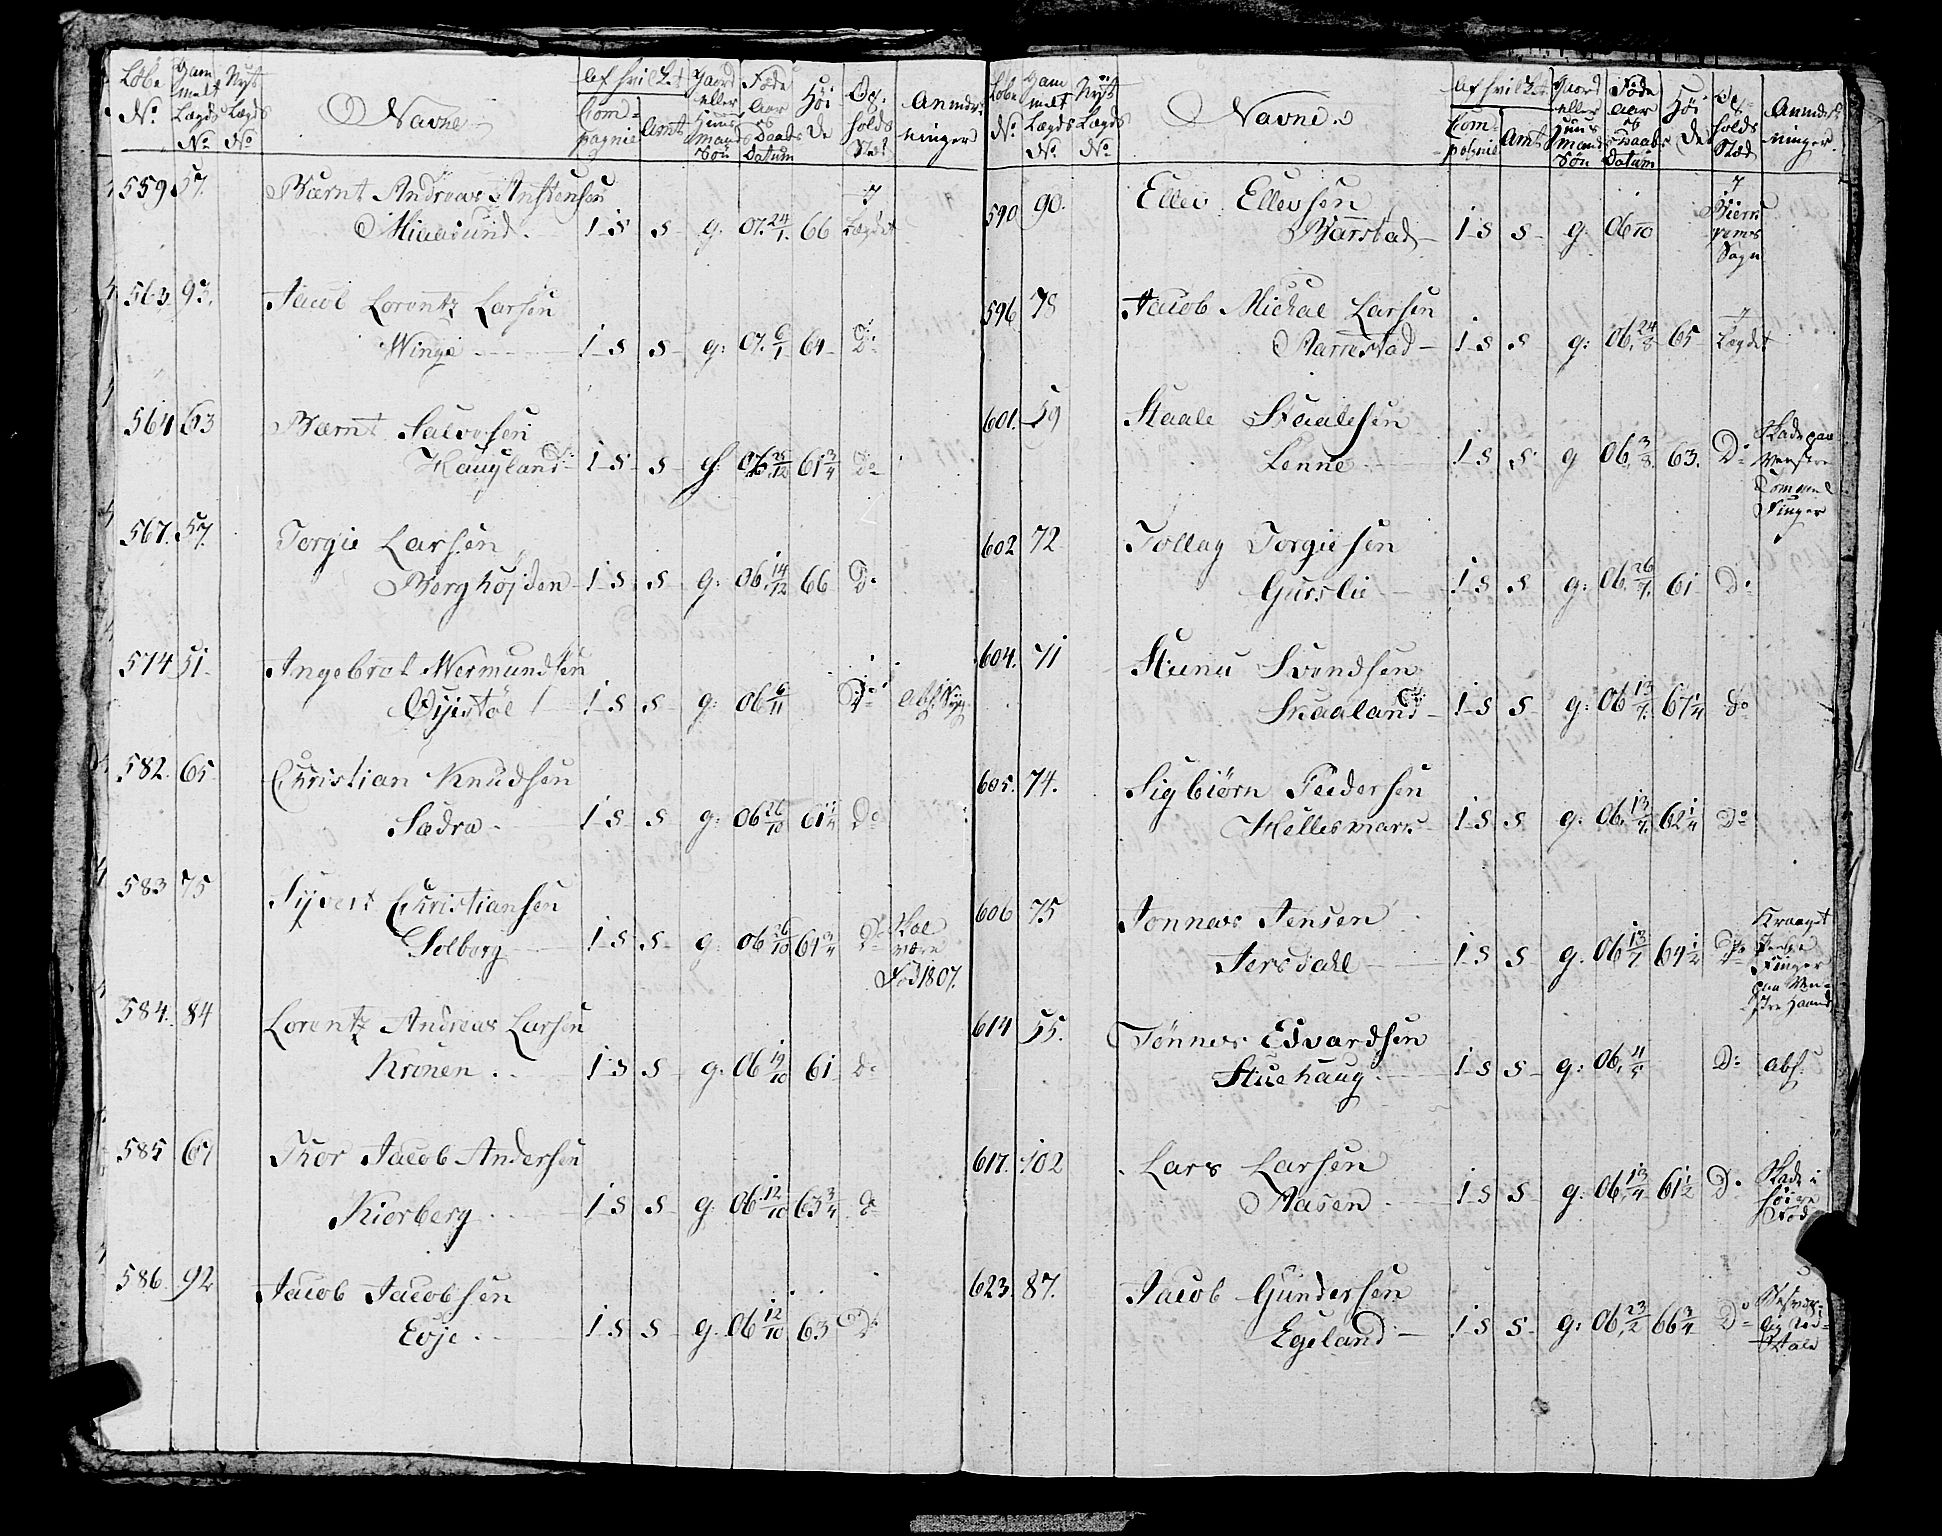 Løbe No. Gammelt Lægds No. Nyt Lægds No. Navne Af hvilket Compagnie Amt Gaard eller Huusmands Søn Føde Aar og Daabs Datum Høide Opholds Sted Anmærkninger
559 57. Bærnt Andreas
Miaasund. 1 S S g. 07. 24/1. 66 i Lægdet
563 93. Jacob Lorentz Larsen
Winge 1 S S g: 07. 6/1 64 Do
564 63 Bærnt Salvesen
Haugland 1 S S 06 25/12 61 3/4 Do
567. 57. Torgie Larsen
Berghøjden 1 S S g. 06. 14/12 66 Do
574 51. Angebret Wermundsen
1 S S g: 06 6/11 Do
582. 65 Christian Knudsen
Sædra 1 S S g. 06 26/10 61 1/4 Do
583 75 Syvert Christiansen
Solberg 1 S S g. 06 26/10 64 3/4 Do Skal
være
Fød 1807.
584. 84 Lorentz Andreas Larsen
Kronen 1 S S g. 06 19/10 61 do
585 67 Thor Jacob Andersen
Kierberg 1 S S g. 06 12/10 63 3/4 do
586. 92 Jacob Jacobsen
Eoje 1 S S g. 06 12/10 63 Do
Løbe No. Gammelt Lægds No. Nyt Lægds No. Navne Af hvilket Compagnie Amt Gaard eller Huusmands Søn Føde Aar og Daabs Datum Høide Opholds Sted Anmærkninger
590 90. Ellev Ellevsen
Barstad 1 S S g. 06 i
Sogn
596 78 Jacob Michal Larsen
Barrestad 1 S S g: 06. 24/8 65 i Lægdet
601. 59 Staale Staalesen
Lenne 1 S S g 06. 3/8. 63. Do Skade paa
Venstre
Tommel
Finger
602 72 Tollag Torgiesen
Gurslie 1 S S g: 06. 26/7. 61 Do
604. 71 Svendsen
Skaaland 1 S S g: 06 13/7. 67 1/4 do
605. 74. Sigbiørn Pedersen
Hellesmark 1 S S g: 06. 13/7. 62 1/4 Do
606 75 Tonnes Jensen
Jersdahl 1 S S g. 06 13/7 64 1/2 Do Kraaget
Finger
paa Ven-
stre Haand
614 55. Tønnes Edvardsen
Stuehaug 1 S S g: 06. 11/5 Do abs.
617. 102 Lars Larsen
Aasen 1 S S g: 06. 13/4 61 1/2 Do Skade i
høire
Fod
623. 87. Jacob Gundersen
Egeland 1 S S g: 06. 23/2 66 3/4 Do